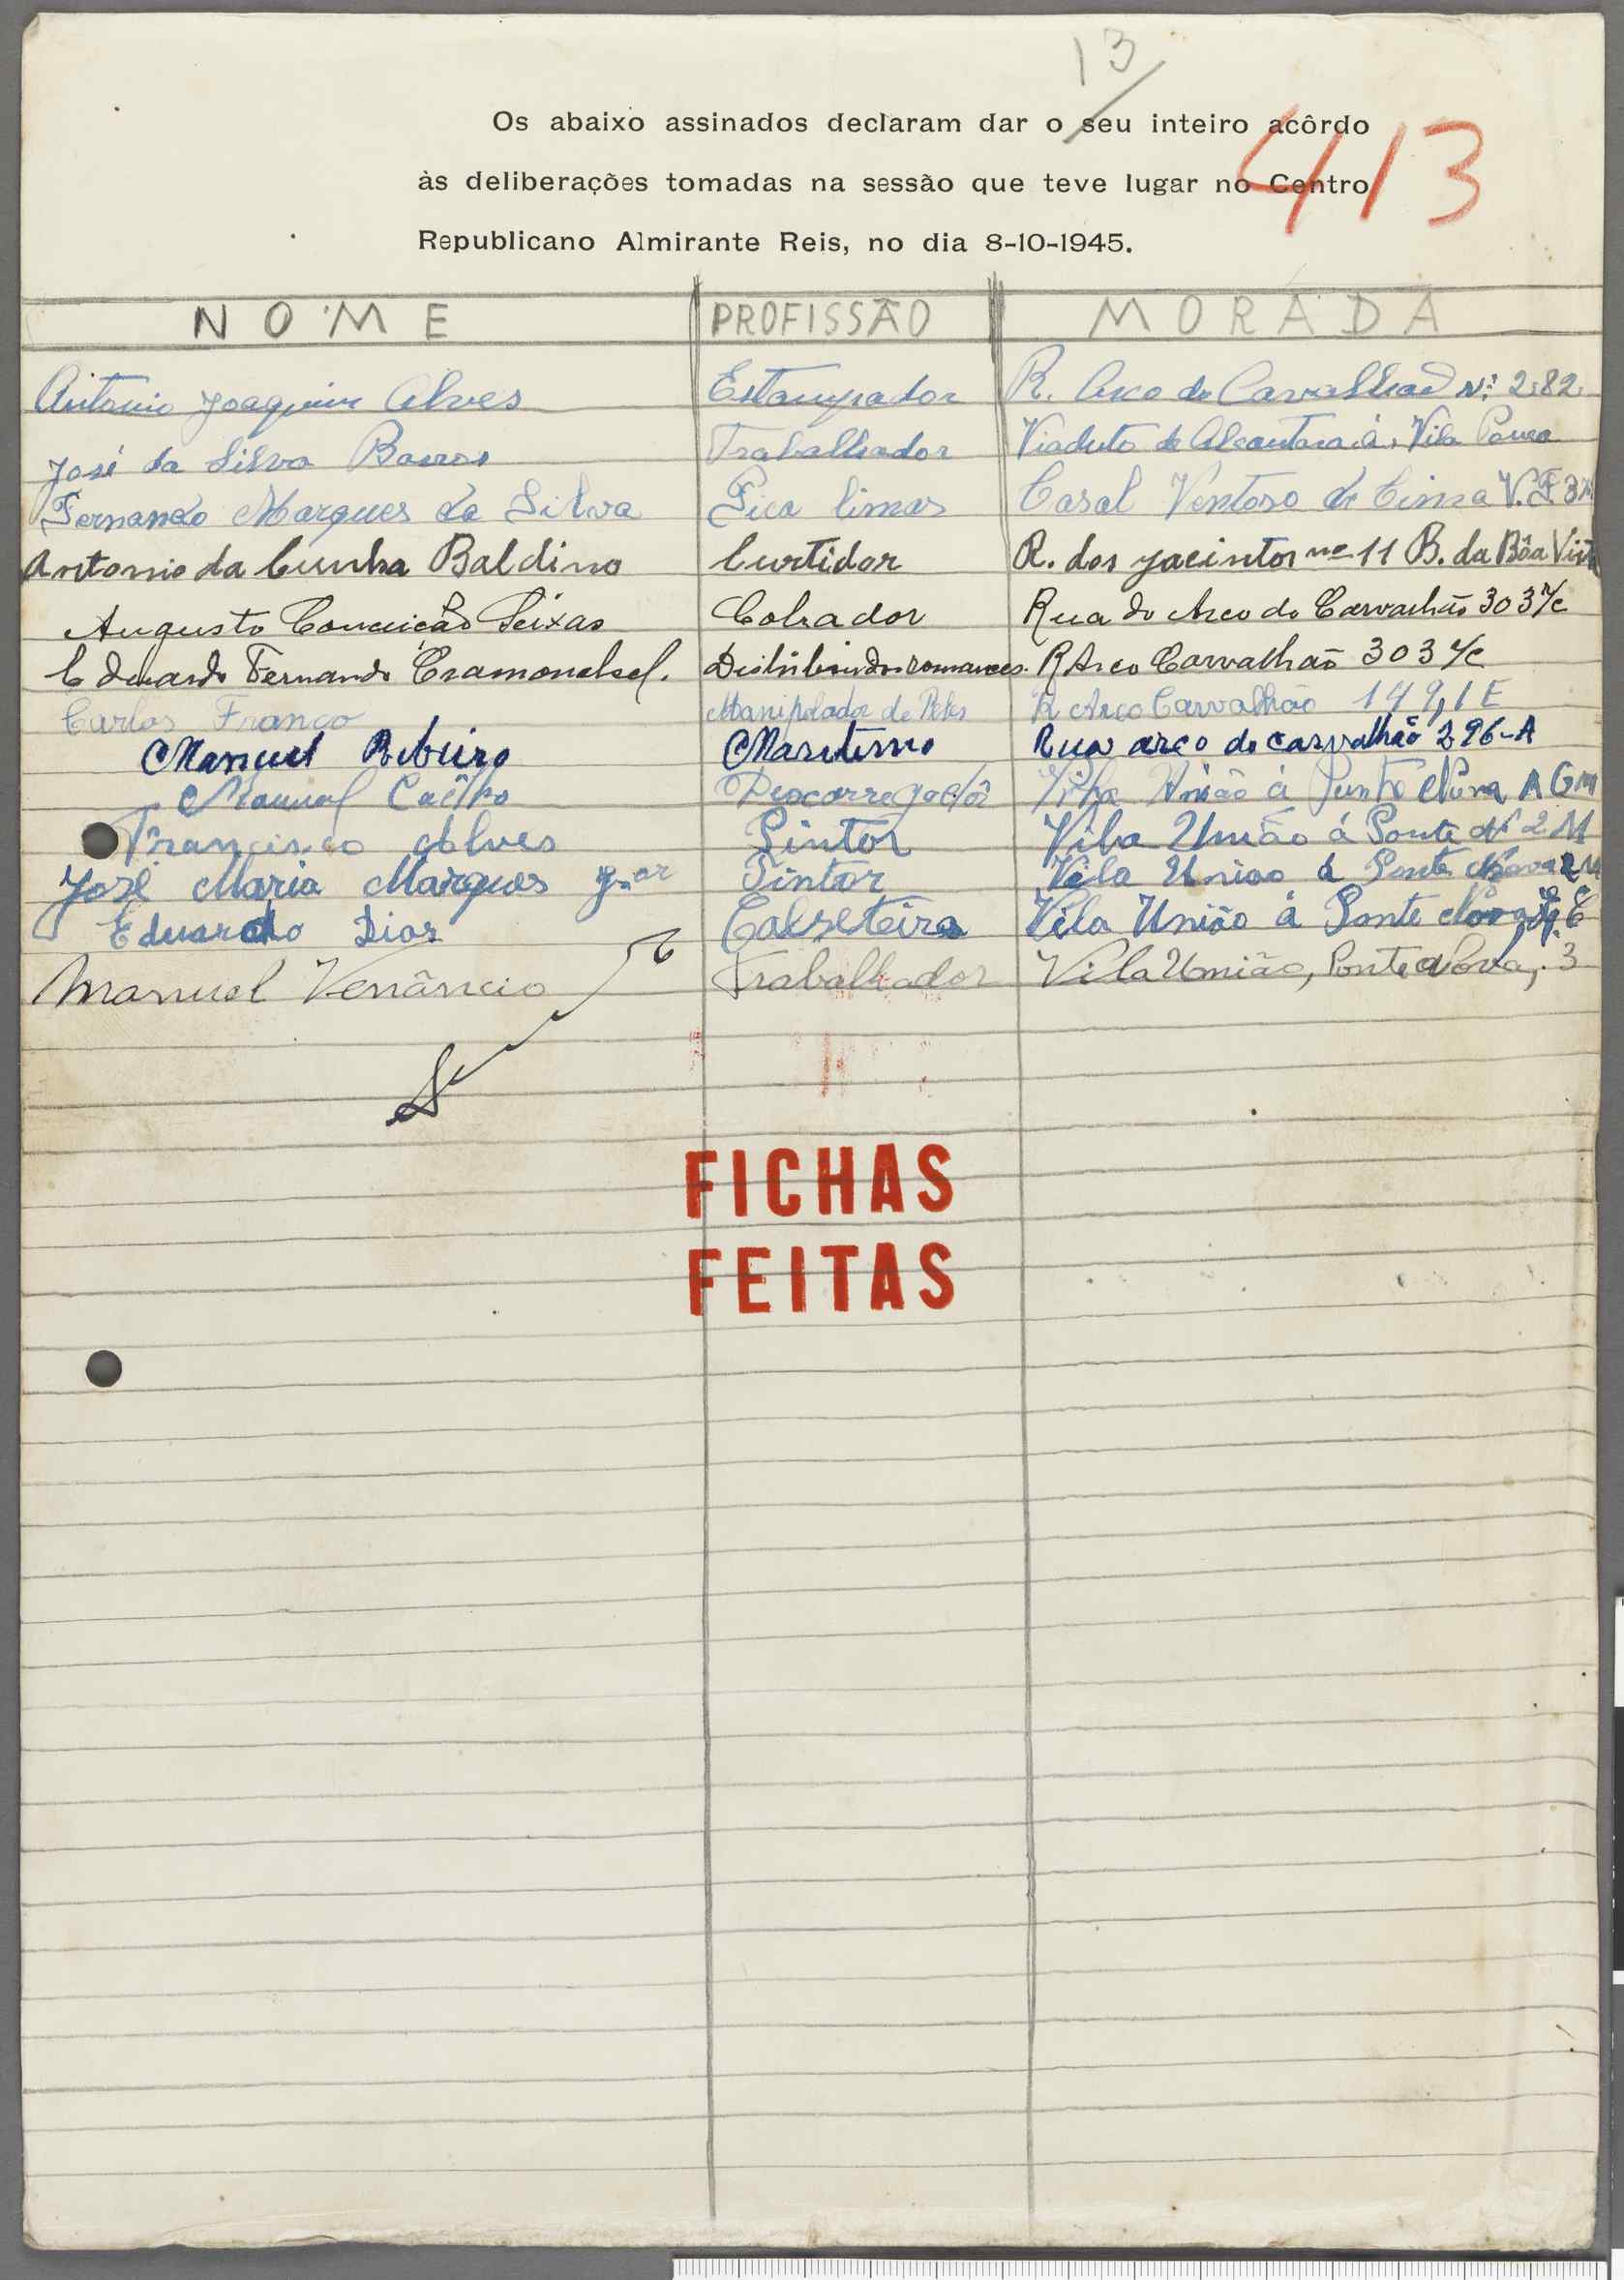 13
Os abaixo assinados declaram dar o seu inteiro acôrdo
às deliberações tomadas na sessão que teve lugar no Centro
Republicano Almirante Reis, no dia 8-10-1945.
413
NOME PROFISSÃO MORADA
Antonio Joaquim Alves Estampador R. Arco do Carvalhão Nº 282
José da Silva Barros Trabalhador Viaduto de Alcantara á, Vila Pouca
Fernando Marques da Silva Pica limas Casal Ventoso de Cima V.F.
Antonio da Cunha Baldino Curtidor R. dos Jacintos nº 11 B. da Bôa Vista
Augusto Conceição Seixas Cobrador Rua do Arco do Carvalhão 303 r/c
Eduardo Fernando Distribuidor romances. R Arco Carvalhão 303 r/c
Carlos Franco Manipolador de Peles R Arco Carvalhão 149, 1 E
Manuel Ribeiro Maritimo Rua arco do carvalhão 296-A
Manuel Coêlho Descarregadôr Vila União á Ponte Nova
Francisco Alves Pintor Vila União á Ponte Nº 2 M
José Maria Marques Jnor Pintor Vila União á Ponte Nova 2 M
Eduardo Dias Calseteiro Vila União á Ponte Nova
Manuel Venâncio Trabalhador Vila União, Ponte Nova, 3
FICHAS
FEITAS